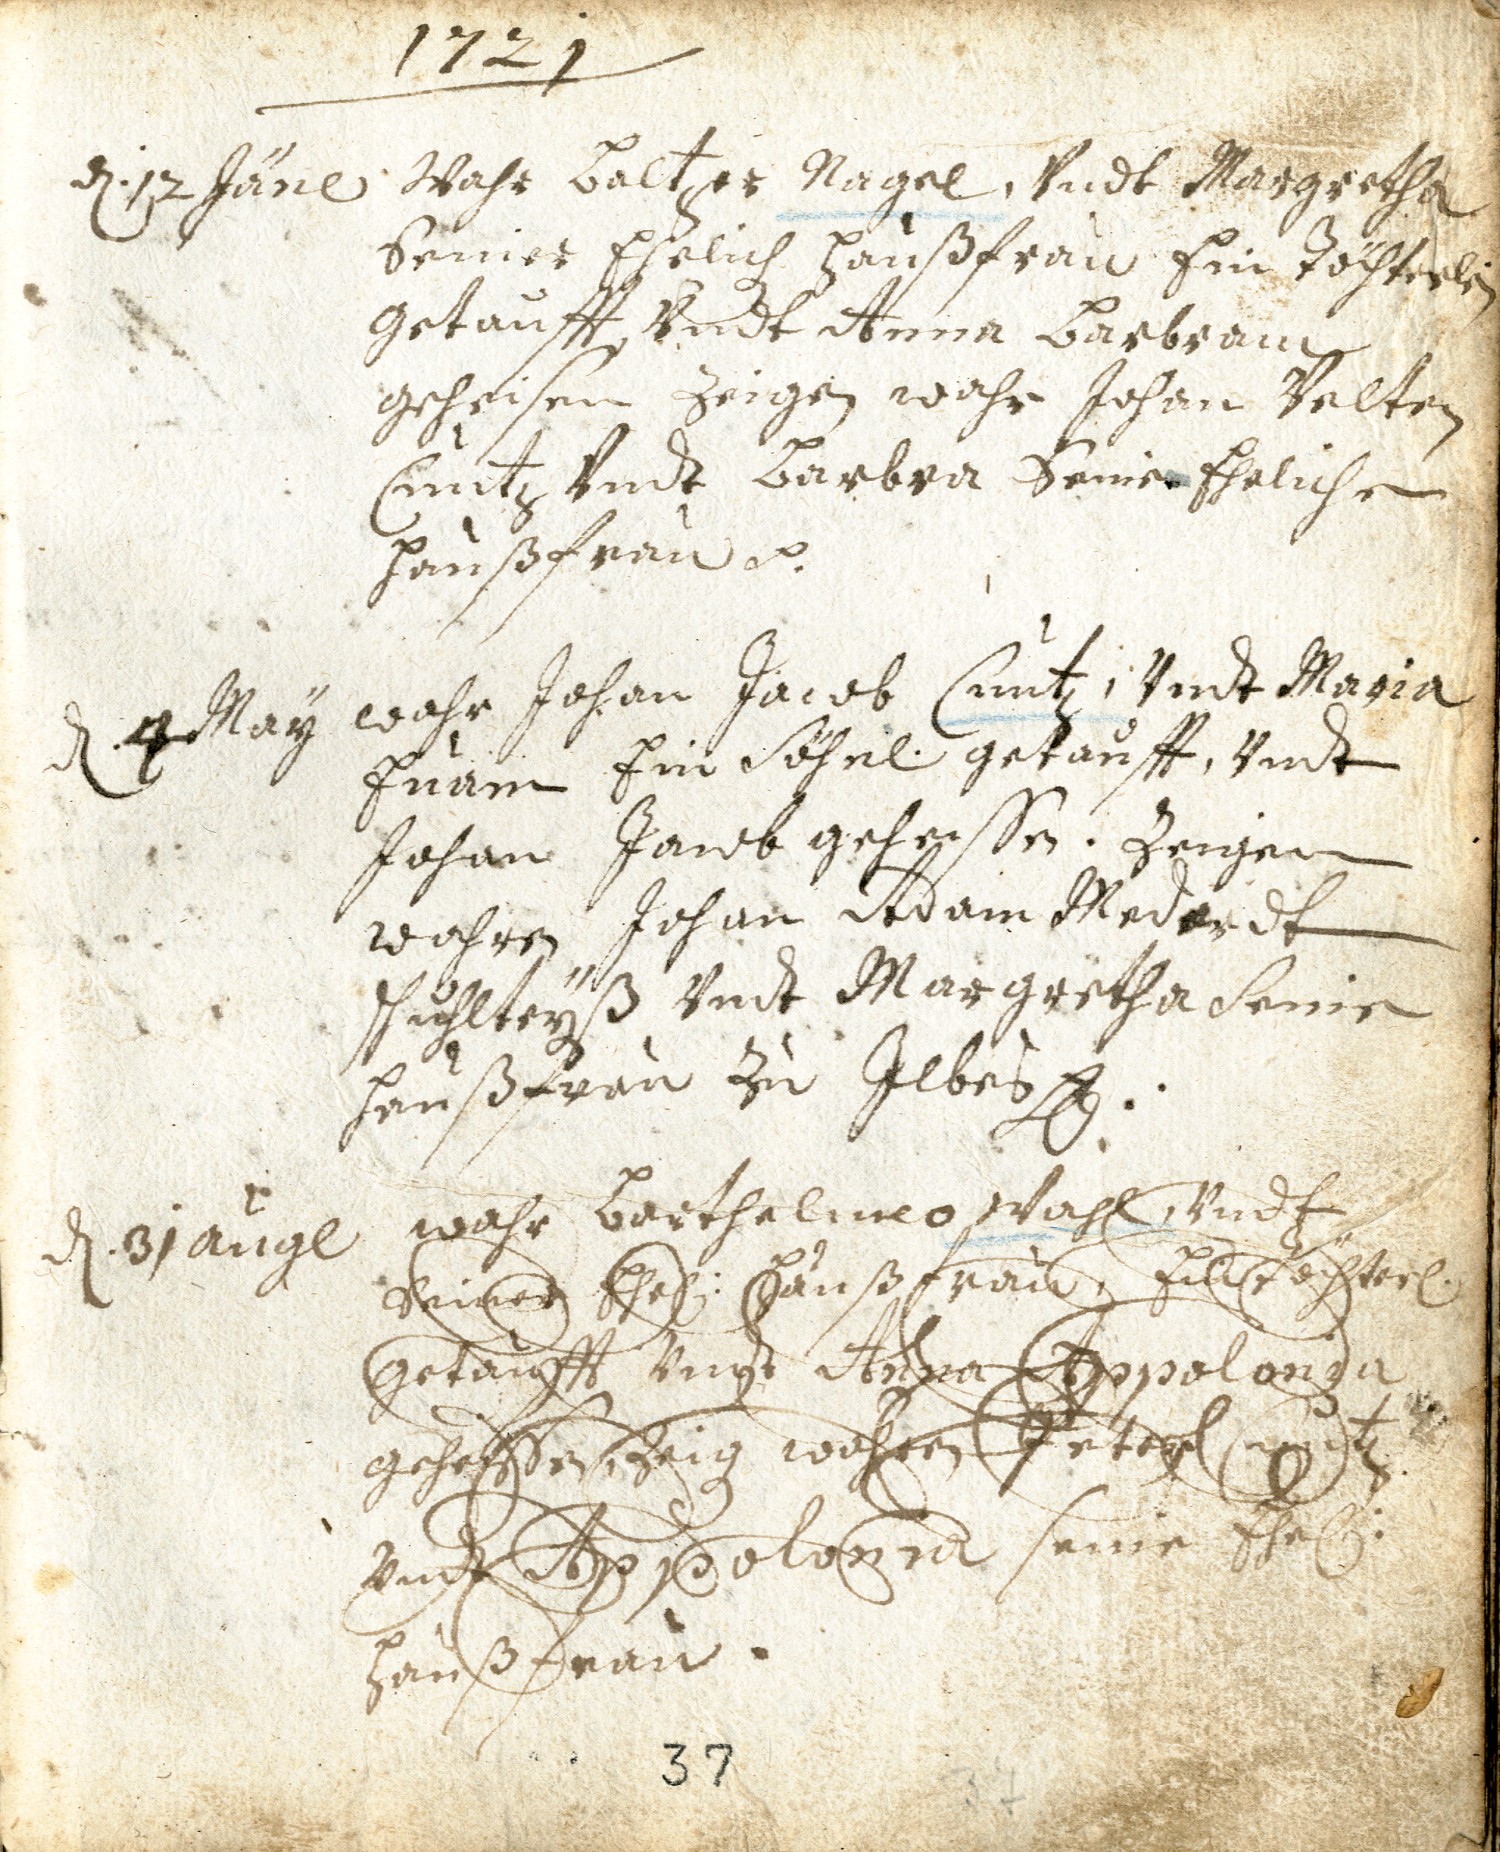 1721
d. 12 Jäne Wahr Baltzer Nagel, Vndt Margretha
Seiner Ehelich haußfrau Ein Töchterlein
getaufft, Vndt Anna Barbram
geheisen Zeigen wahr Johan Velten
Cuntz Vndt Barbra Seine Eheliche
haußfrau
d. 4 May wahr Johan Jacob Cuntz, Vndt Maria
Ein Söhnl. getaufft, Vndt
Johan Jacob geheissen. Zeigen
wahren Johan Adam Mederdt
schuhlteÿß Vndt Margretha Seine
haußfrau Zu Ilbes
d. 31 augl wahr Barthelmeo Wahl Vndt
Seiner Ehel: haußfrau, Ein Töchterl.
getaufft Vndt Anna Appolonia
geheissen, Zeig wahren Peter Cuntz
Vndt Appolonia seine Ehel:
haußfrau.
37
37